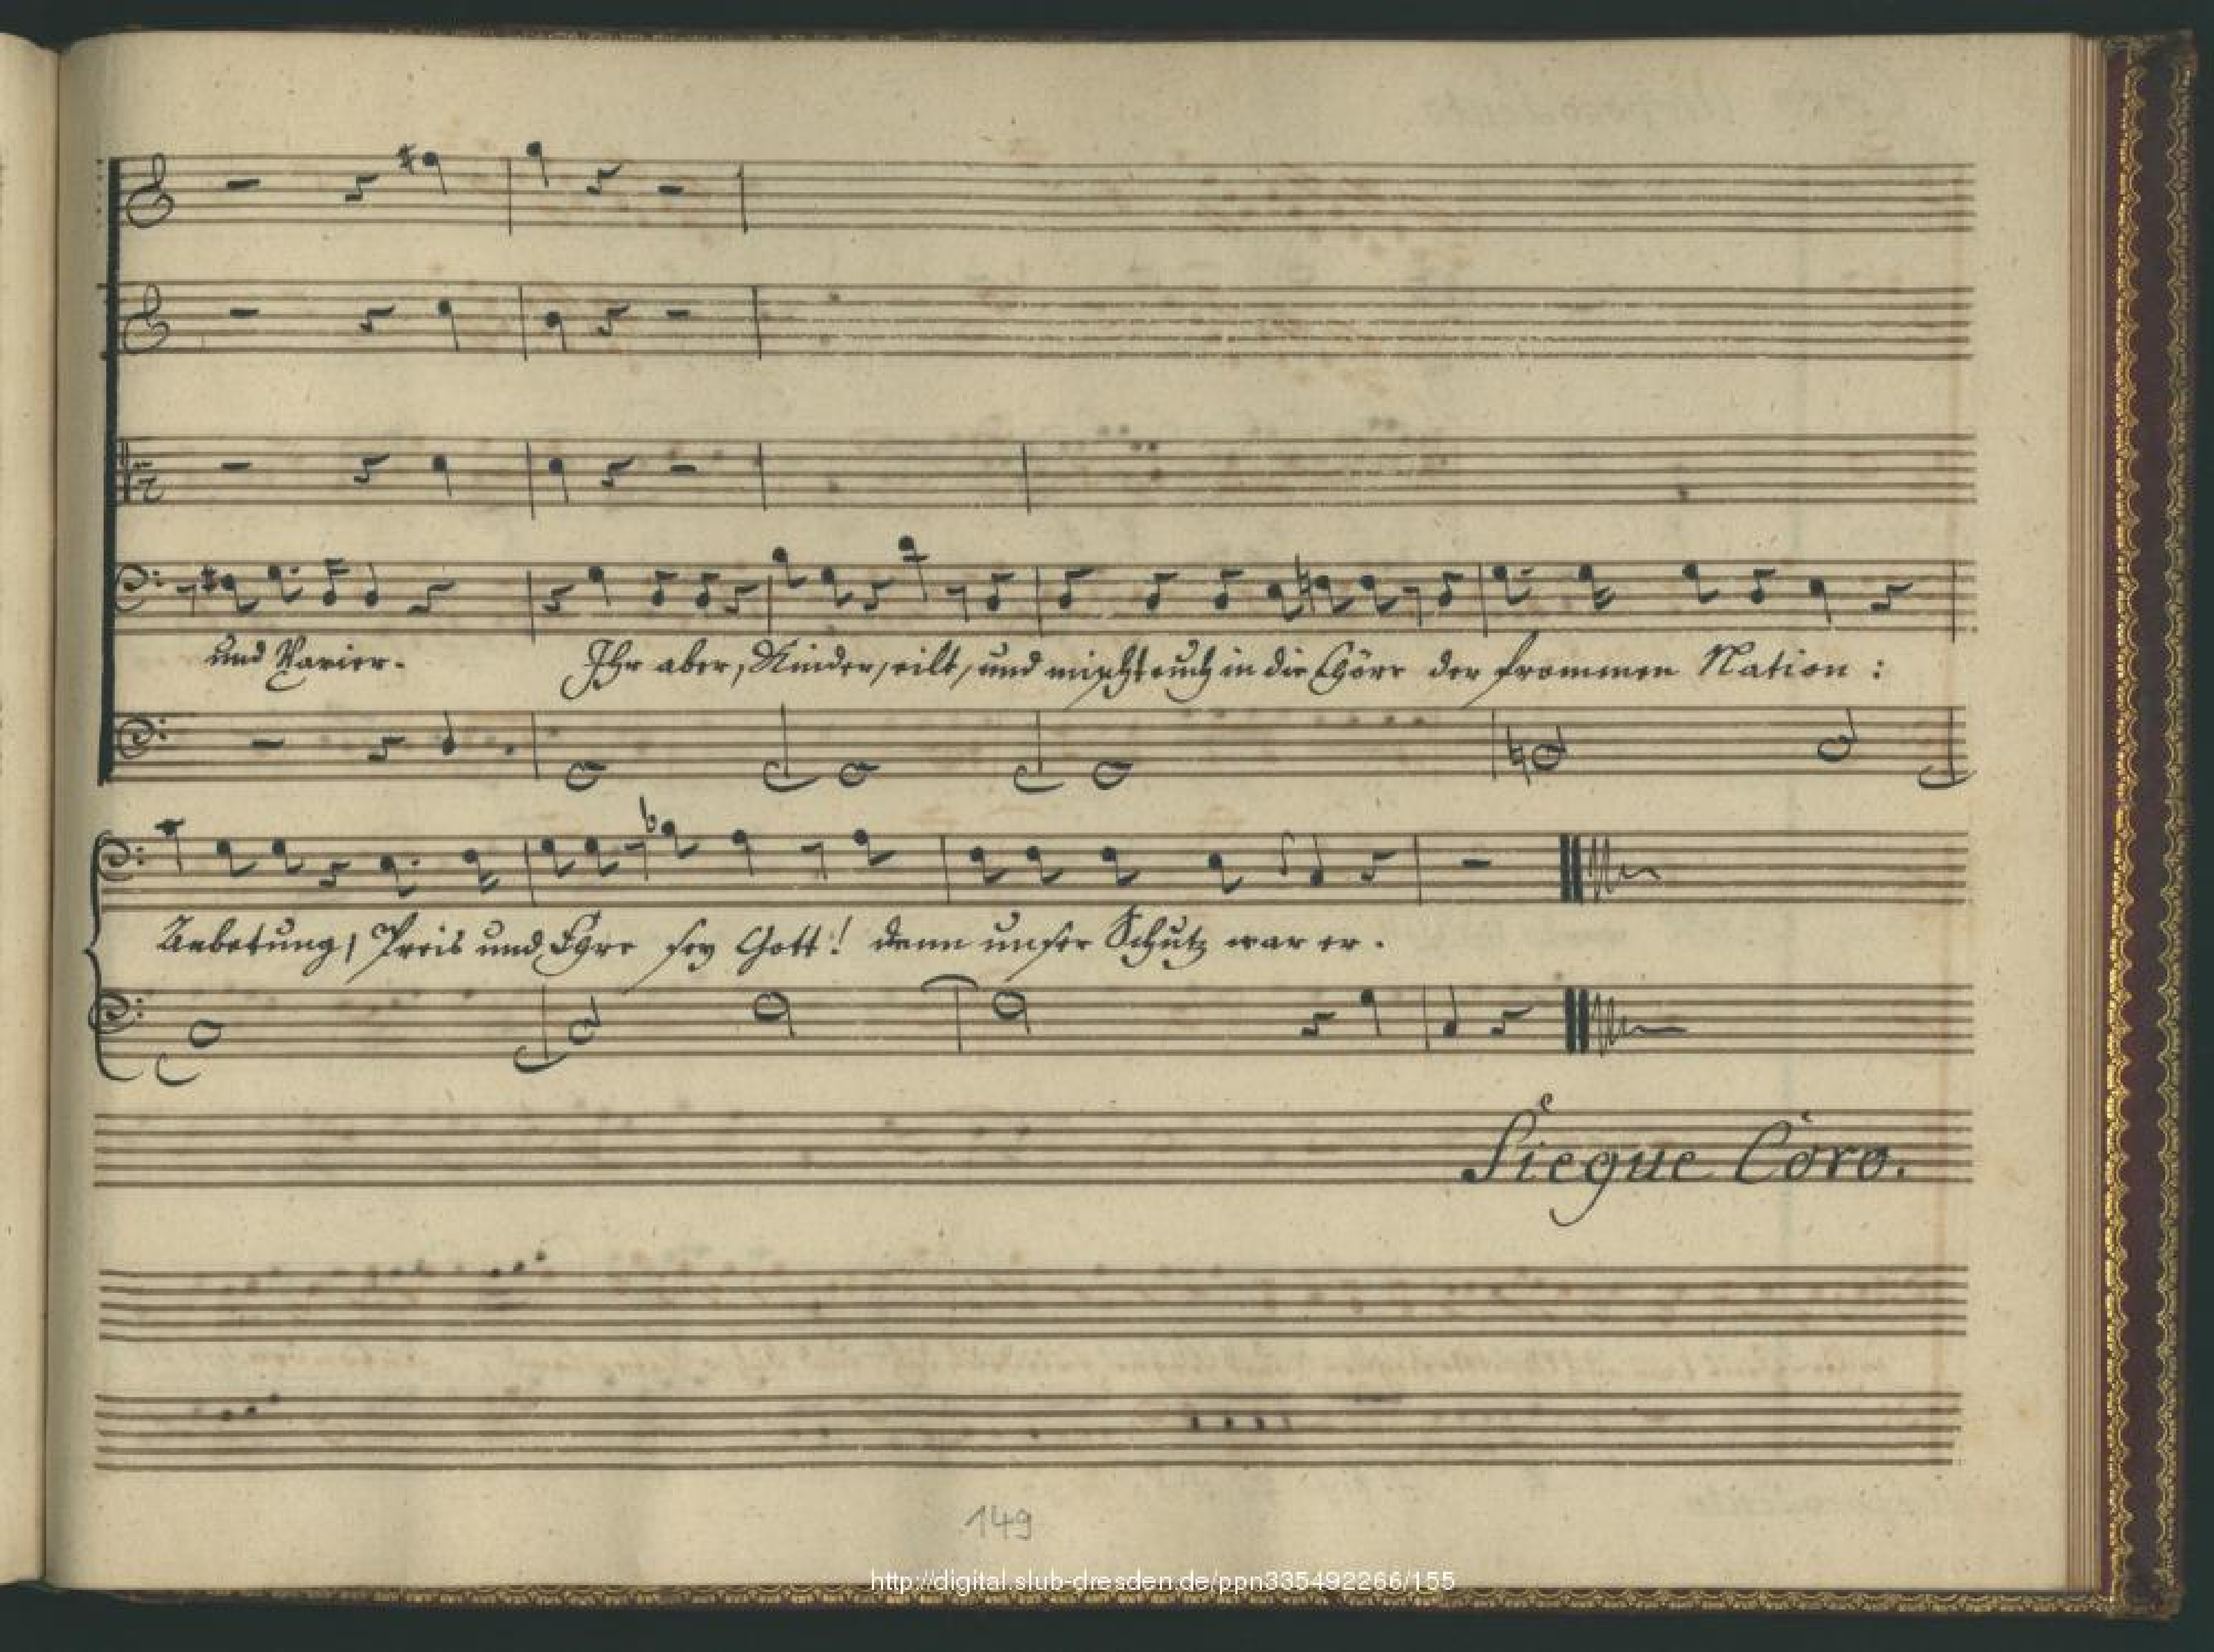 und Ihr aber, Kinder, eilt, und mischt euch in die Chöre der frommen Nation:
Anbetung, Preis und Ehre sey Gott! denn unser Schutz war er.
Siegue Coro.
149
http://digital.slub-dresden.de/ppn335492266/155